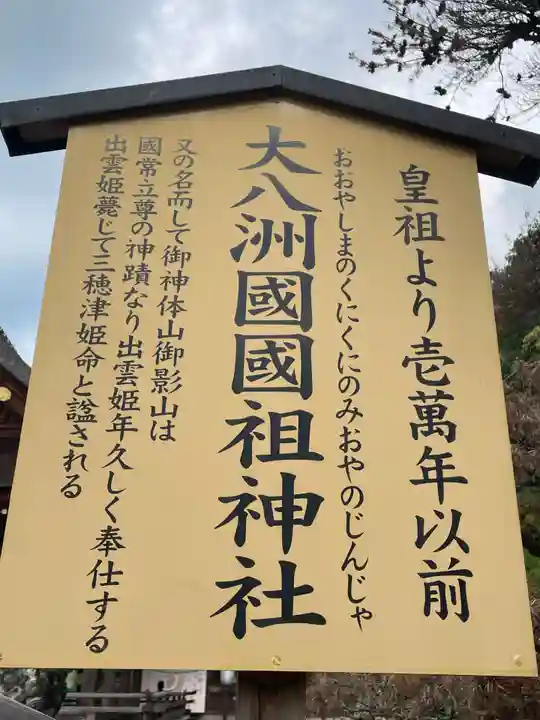 皇祖より壱萬年以前
おおやしまのくにくにのみおやのじんじゃ
大八洲國國祖神社
又の名而して御神体山御影山は
國常立尊の神蹟なり出雲姫年久しく奉仕する
出雲姫薨じて三穂津姫命と諡される